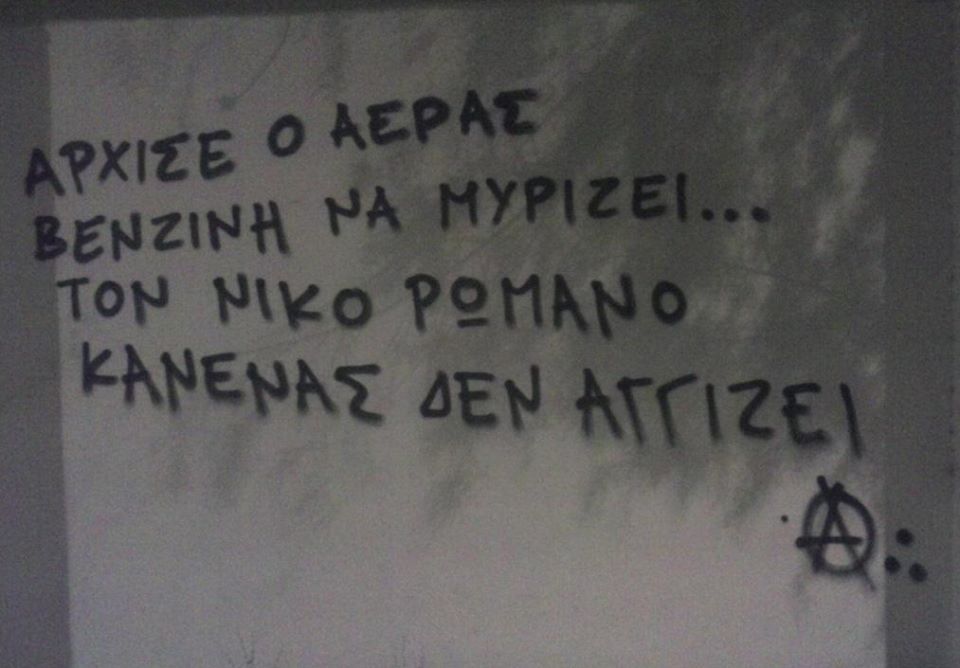 ΑΡΧΙΣΕ Ο ΑΕΡΑΣ
ΒΕΝΖΙΝΗ ΝΑ ΜΥΡΙΖΕΙ...
ΤΟΝ ΝΙΚΟ ΡΩΜΑΝΟ
ΚΑΝΕΝΑΣ ΔΕΝ ΑΓΓΙΖΕΙ